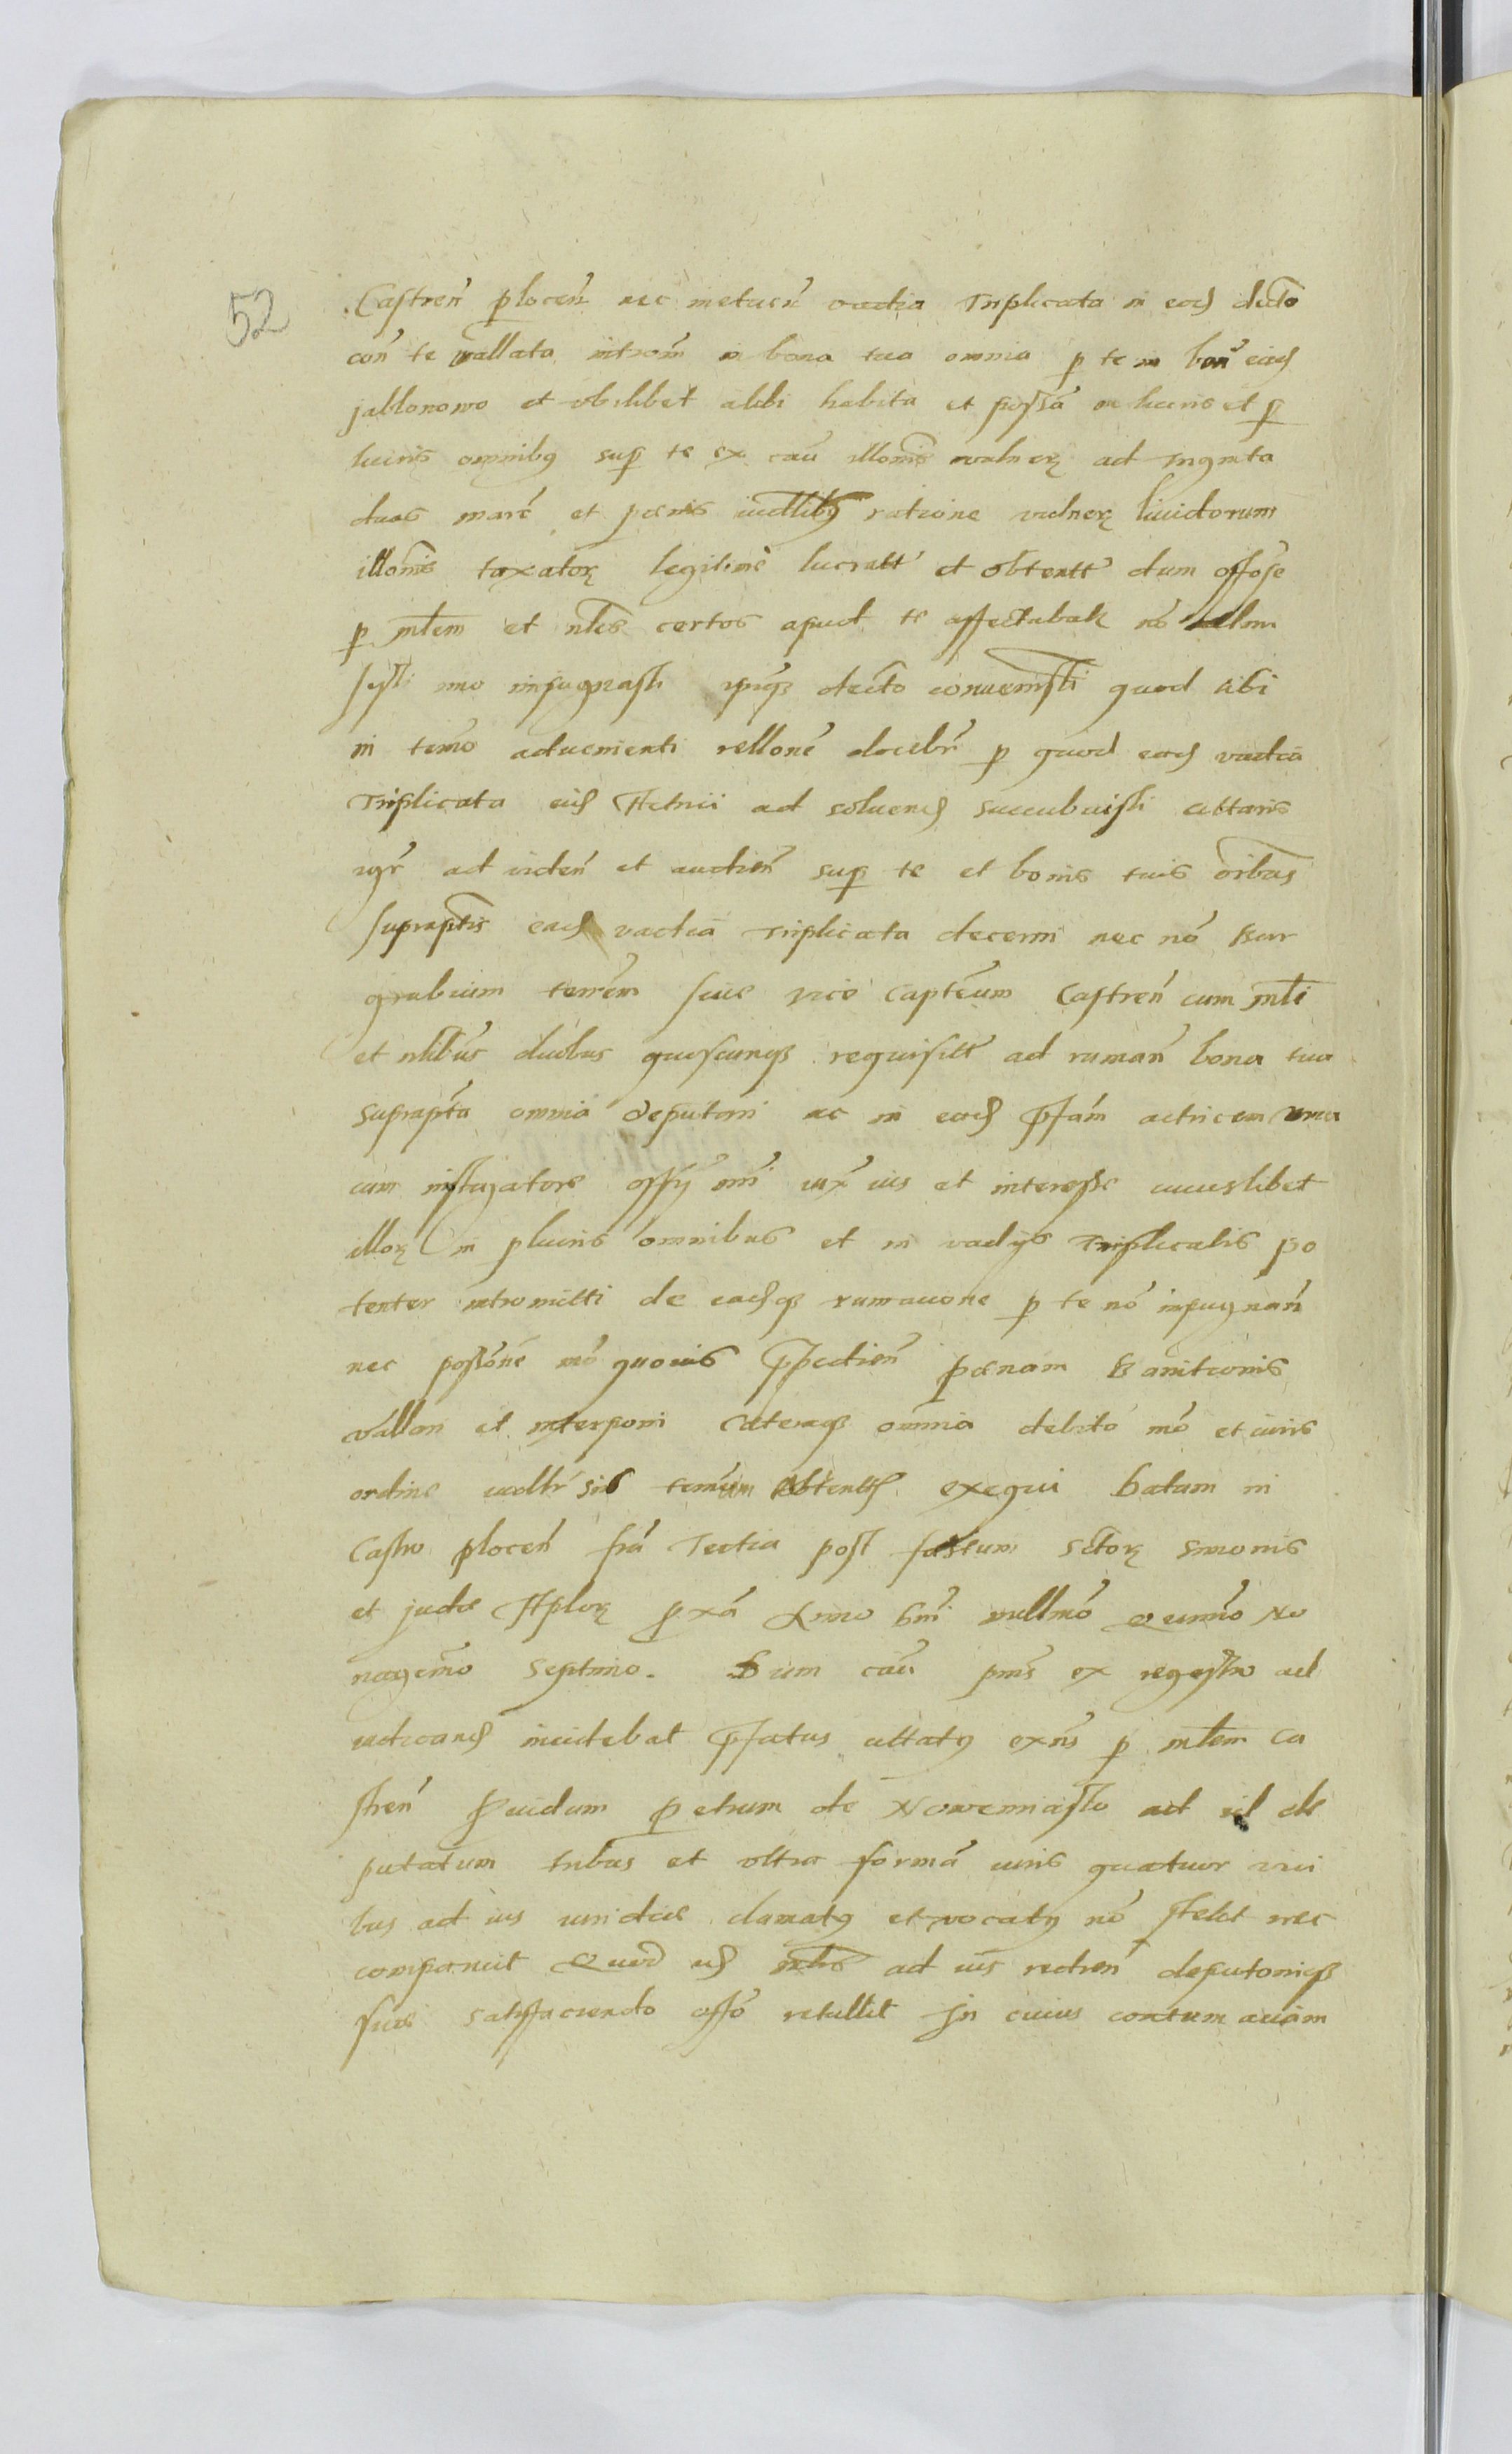 52
Castren̄ plocen̄ nec metuen̄ vadia Triplicata in eod decto
con̄ te vallata introm̄ in bona tua omnia p te in bon̄ eisd
jablonowo et vbilibet alibi habita et possā in lucris et p
lucris omnibus sup te ex cau illonis vulnerꝝ ad Triginta
duas marc et poenis iudlibus ratione vulnerꝝ liuidorum
illonis taxatorꝝ legitime lucratt et obtentt dum offose
p mlem et nles certos apud te affectabat no
sisti imo impugnasti ipiqꝫ decto conuenisti quod tibi
in termo aduenienti rellone docebr p quod eod vadia
Triplicata eisd Actrici ad soluend succubuisti cittaris
igr ad viden̄ et audien̄ sup te et bonis tuis oibus
supraptis ead vadia Triplicata decerni nec no Bur
grabium terrem siue vice Capteum Castren̄ cum mli
et nlibus duobus quoscunqꝫ requisitt ad ruman̄ bona tua
suprapta omnia deputari ac in eod pfam actricem vna
cum instigatore offy nri iux ius et interesse cuiuslibet
illorꝝ in plucris omnibus et in vadys Triplicatis po
tenter intromitti de eadqꝫ rumacione p te no impugnan̄
nec possone mo quouis ppedien̄ poenam Banitionis
vallari et interponi Caeteraqꝫ omnia debito mo et iuris
ordine iudlr sib terminum obtentt exequi Datum in
Castro plocen̄ fria Tertia post festum sctorꝝ simonis
et judae Aplorꝝ pxa Anno Dni millmo Quinmo No
nagemo Septimo. Dum cau pns ex regestro ad
iudicand incidebat pfatus cittatus exns p mlem Ca
stren̄ pvidum petrum de Nowemiasto ad id de
putatum tribus et vltra forma iuris quatuor vici
bus ad ius iuridice clamatus et vocatus no stetit nec
comparuit Quod isd mlis ad ius redien̄ deputoniqꝫ
suae satisfaciendo offo retullit In cuius contumaciam